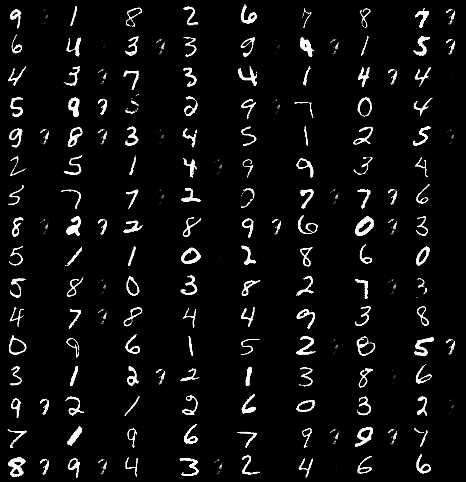 9 1 8 2 6 7 8 7
6 4 3 3 9 9 1 5
4 3 7 3 4 1 4 4
5 9 5 2 9 7 0 4
9 8 3 4 5 1 2 5
2 5 1 4 9 9 3 4
5 7 7 2 0 7 7 6
8 2 2 8 9 6 0 3
5 1 1 0 2 8 6 0
5 8 0 3 8 2 7 3
4 7 8 4 4 9 3 8
0 9 6 1 5 2 8 5
3 1 2 2 1 3 8 6
9 2 1 2 6 0 3 2
7 1 9 6 7 9 9 7
8 9 4 3 2 4 6 6